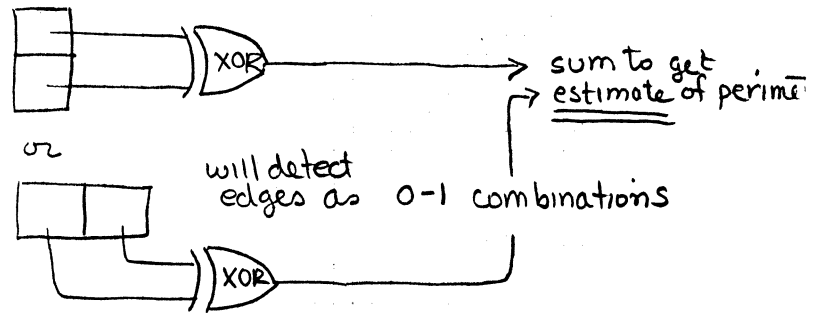 XOR
sum to get
estimate of
or
will detect
edges as 0-1 combinations
XOR